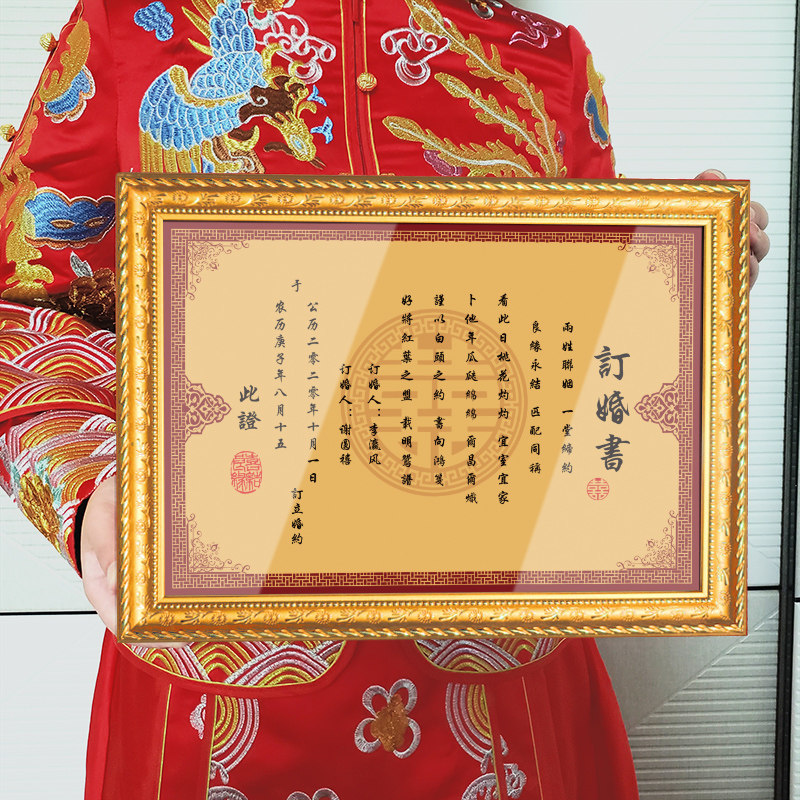 訂婚書
兩姓聯姻 一堂締約
良緣永結 匹配同稱
看此日桃花灼灼 宜室宜家
卜他年瓜瓞綿綿 爾昌爾熾
謹以白頭之約 書向鴻箋
好將紅葉之盟 載明鴛譜
訂婚人：李瀛风
訂婚人：谢圆禧
于 公历二零二零年十月一日 訂立婚約
农历庚子年八月十五
此證